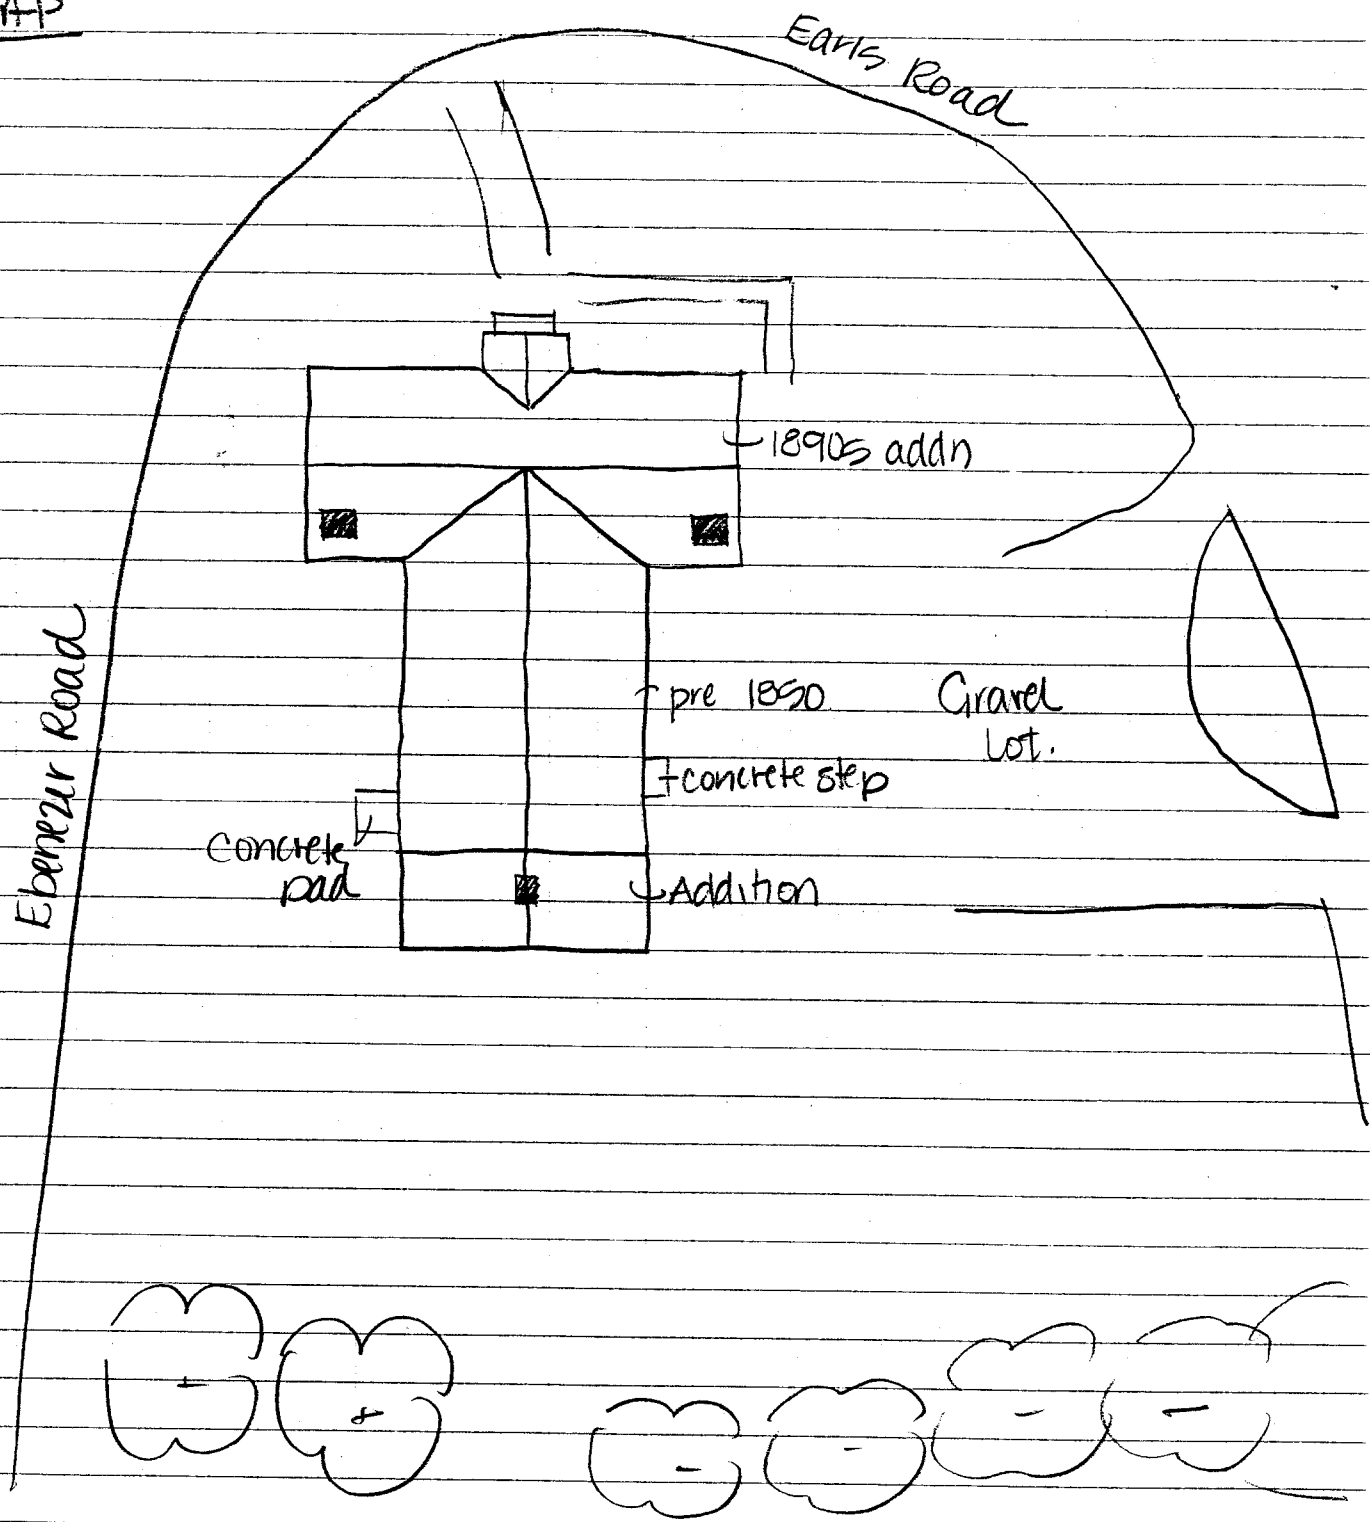 Earls Road
1890s addn
Ebenezer Road
pre 1850
Gravel
Lot.
concrete step
Concrete
pad
Addition